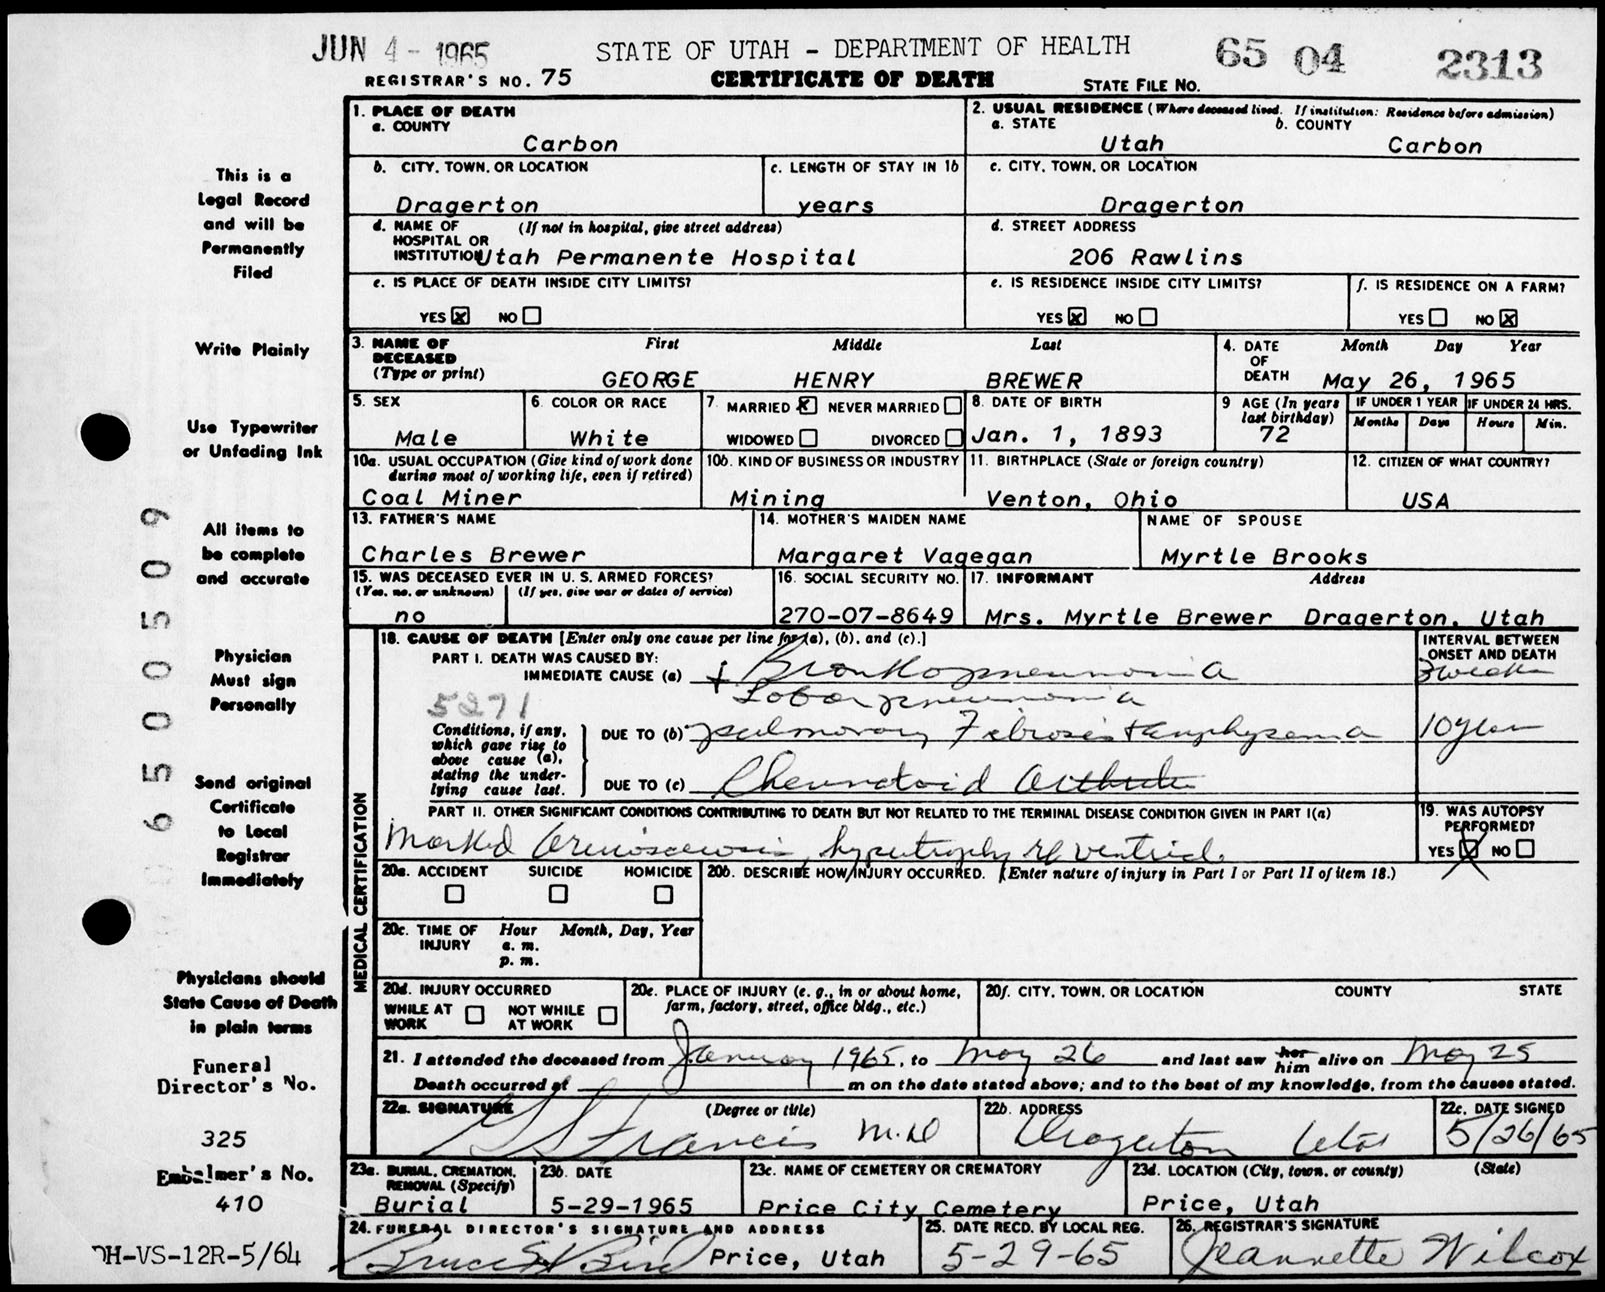 JUN 4 - 1965
STATE OF UTAH - DEPARTMENT OF HEALTH
65 04 2313
REGISTRAR'S NO. 75
CERTIFICATE OF DEATH
STATE FILE NO.
This is a
Legal Record
and will be
Permanently
Filed
Write Plainly
Use Typewriter
or Unfading Ink
All items to
be complete
and accurate
Physician
Must sign
Personally
Send original
Certificate
to Local
Registrar
Immediately
Physicians should
State Cause of Death
in plain terms
Funeral
Director's No.
325
Embalmer's No.
410
65005009
1. PLACE OF DEATH
a. COUNTY
Carbon
2. USUAL RESIDENCE (Where deceased lived. If institution: Residence before admission)
a. STATE b. COUNTY
Utah Carbon
b. CITY, TOWN, OR LOCATION
Dragerton
c. LENGTH OF STAY IN 1b
years
c. CITY, TOWN, OR LOCATION
Dragerton
d. NAME OF (If not in hospital, give street address)
HOSPITAL OR
INSTITUTION Utah Permanente Hospital
d. STREET ADDRESS
206 Rawlins
e. IS PLACE OF DEATH INSIDE CITY LIMITS?
YES X NO
e. IS RESIDENCE INSIDE CITY LIMITS?
YES X NO
f. IS RESIDENCE ON A FARM?
YES NO X
3. NAME OF DECEASED First Middle Last
(Type or print)
GEORGE HENRY BREWER
4. DATE OF DEATH Month Day Year
May 26, 1965
5. SEX
Male
6. COLOR OR RACE
White
7. MARRIED X NEVER MARRIED
WIDOWED DIVORCED
8. DATE OF BIRTH
Jan. 1, 1893
9 AGE (In years
last birthday)
72
IF UNDER 1 YEAR IF UNDER 24 HRS.
Months Days Hours Min.
10a. USUAL OCCUPATION (Give kind of work done
during most of working life, even if retired)
Coal Miner
10b. KIND OF BUSINESS OR INDUSTRY
Mining
11. BIRTHPLACE (State or foreign country)
Venton, Ohio
12. CITIZEN OF WHAT COUNTRY?
USA
13. FATHER'S NAME
Charles Brewer
14. MOTHER'S MAIDEN NAME
Margaret Vagegan
NAME OF SPOUSE
Myrtle Brooks
15. WAS DECEASED EVER IN U.S. ARMED FORCES?
(Yes, no, or unknown) (If yes, give war or dates of service)
no
16. SOCIAL SECURITY NO.
270-07-8649
17. INFORMANT Address
Mrs. Myrtle Brewer Dragerton, Utah
MEDICAL CERTIFICATION
18. CAUSE OF DEATH [Enter only one cause per line for (a), (b), and (c).]
INTERVAL BETWEEN
ONSET AND DEATH
PART I. DEATH WAS CAUSED BY:
IMMEDIATE CAUSE (a) Bronkopneumonia 3 weeks
+ Lobar pneumonia
5271
Conditions, if any,
which gave rise to
above cause (a),
stating the under-
lying cause last.
DUE TO (b) pulmonary Fibrosis + emphysema 10 years
DUE TO (c) Rheumatoid Arthritis
PART II. OTHER SIGNIFICANT CONDITIONS CONTRIBUTING TO DEATH BUT NOT RELATED TO THE TERMINAL DISEASE CONDITION GIVEN IN PART I(a)
Marked hypertrophy rt ventricl.
19. WAS AUTOPSY
PERFORMED?
YES X NO
20a. ACCIDENT SUICIDE HOMICIDE
20b. DESCRIBE HOW INJURY OCCURRED. (Enter nature of injury in Part I or Part II of item 18.)
20c. TIME OF INJURY Hour Month, Day, Year
a. m.
p. m.
20d. INJURY OCCURRED
WHILE AT WORK NOT WHILE AT WORK
20e. PLACE OF INJURY (e. g., in or about home,
farm, factory, street, office bldg., etc.)
20f. CITY, TOWN, OR LOCATION COUNTY STATE
21. I attended the deceased from January 1965, to May 26 and last saw her him alive on May 25
Death occurred at m on the date stated above; and to the best of my knowledge, from the causes stated.
22a. SIGNATURE (Degree or title)
Francis M.D
22b. ADDRESS
Dragerton Utah
22c. DATE SIGNED
5/26/65
23a. BURIAL, CREMATION,
REMOVAL (Specify)
Burial
23b. DATE
5-29-1965
23c. NAME OF CEMETERY OR CREMATORY
Price City Cemetery
23d. LOCATION (City, town, or county) (State)
Price, Utah
24. FUNERAL DIRECTOR'S SIGNATURE AND ADDRESS
Price, Utah
25. DATE RECD. BY LOCAL REG.
5-29-65
26. REGISTRAR'S SIGNATURE
Jeannette Wilcox
DH-VS-12R-5/64